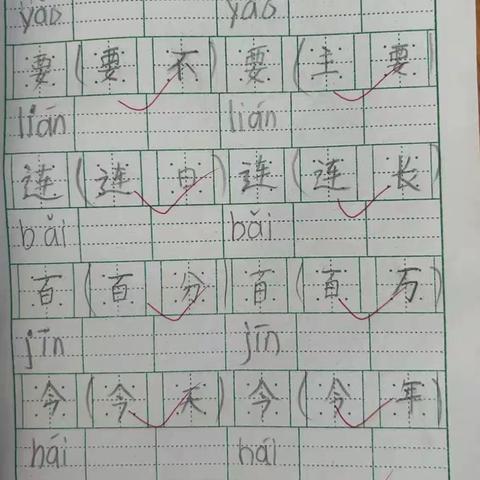 yào yào
要(要不) 要(主要)
lián lián
连(连日) 连(连长)
bǎi bǎi
百(百分) 百(百万)
jīn jīn
今(今天) 今(今年)
hái hái